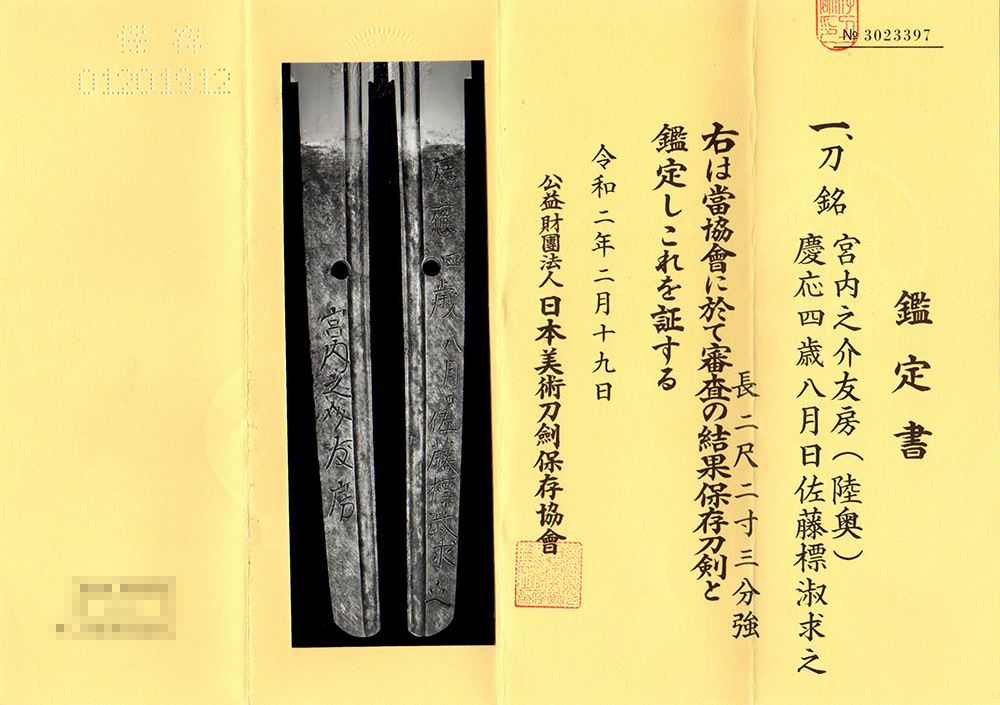 № 3023397
鑑定書
一、刀 銘 宮内之介友房（陸奥）
慶応四歳八月日佐藤標淑求之
長二尺二寸三分強
右は當協會に於て審査の結果保存刀剣と
鑑定しこれを証する
令和二年二月十九日
公益財團法人日本美術刀劍保存協會
慶應四歳八月日佐藤標淑求之
宮内之介友房
保存
01201912